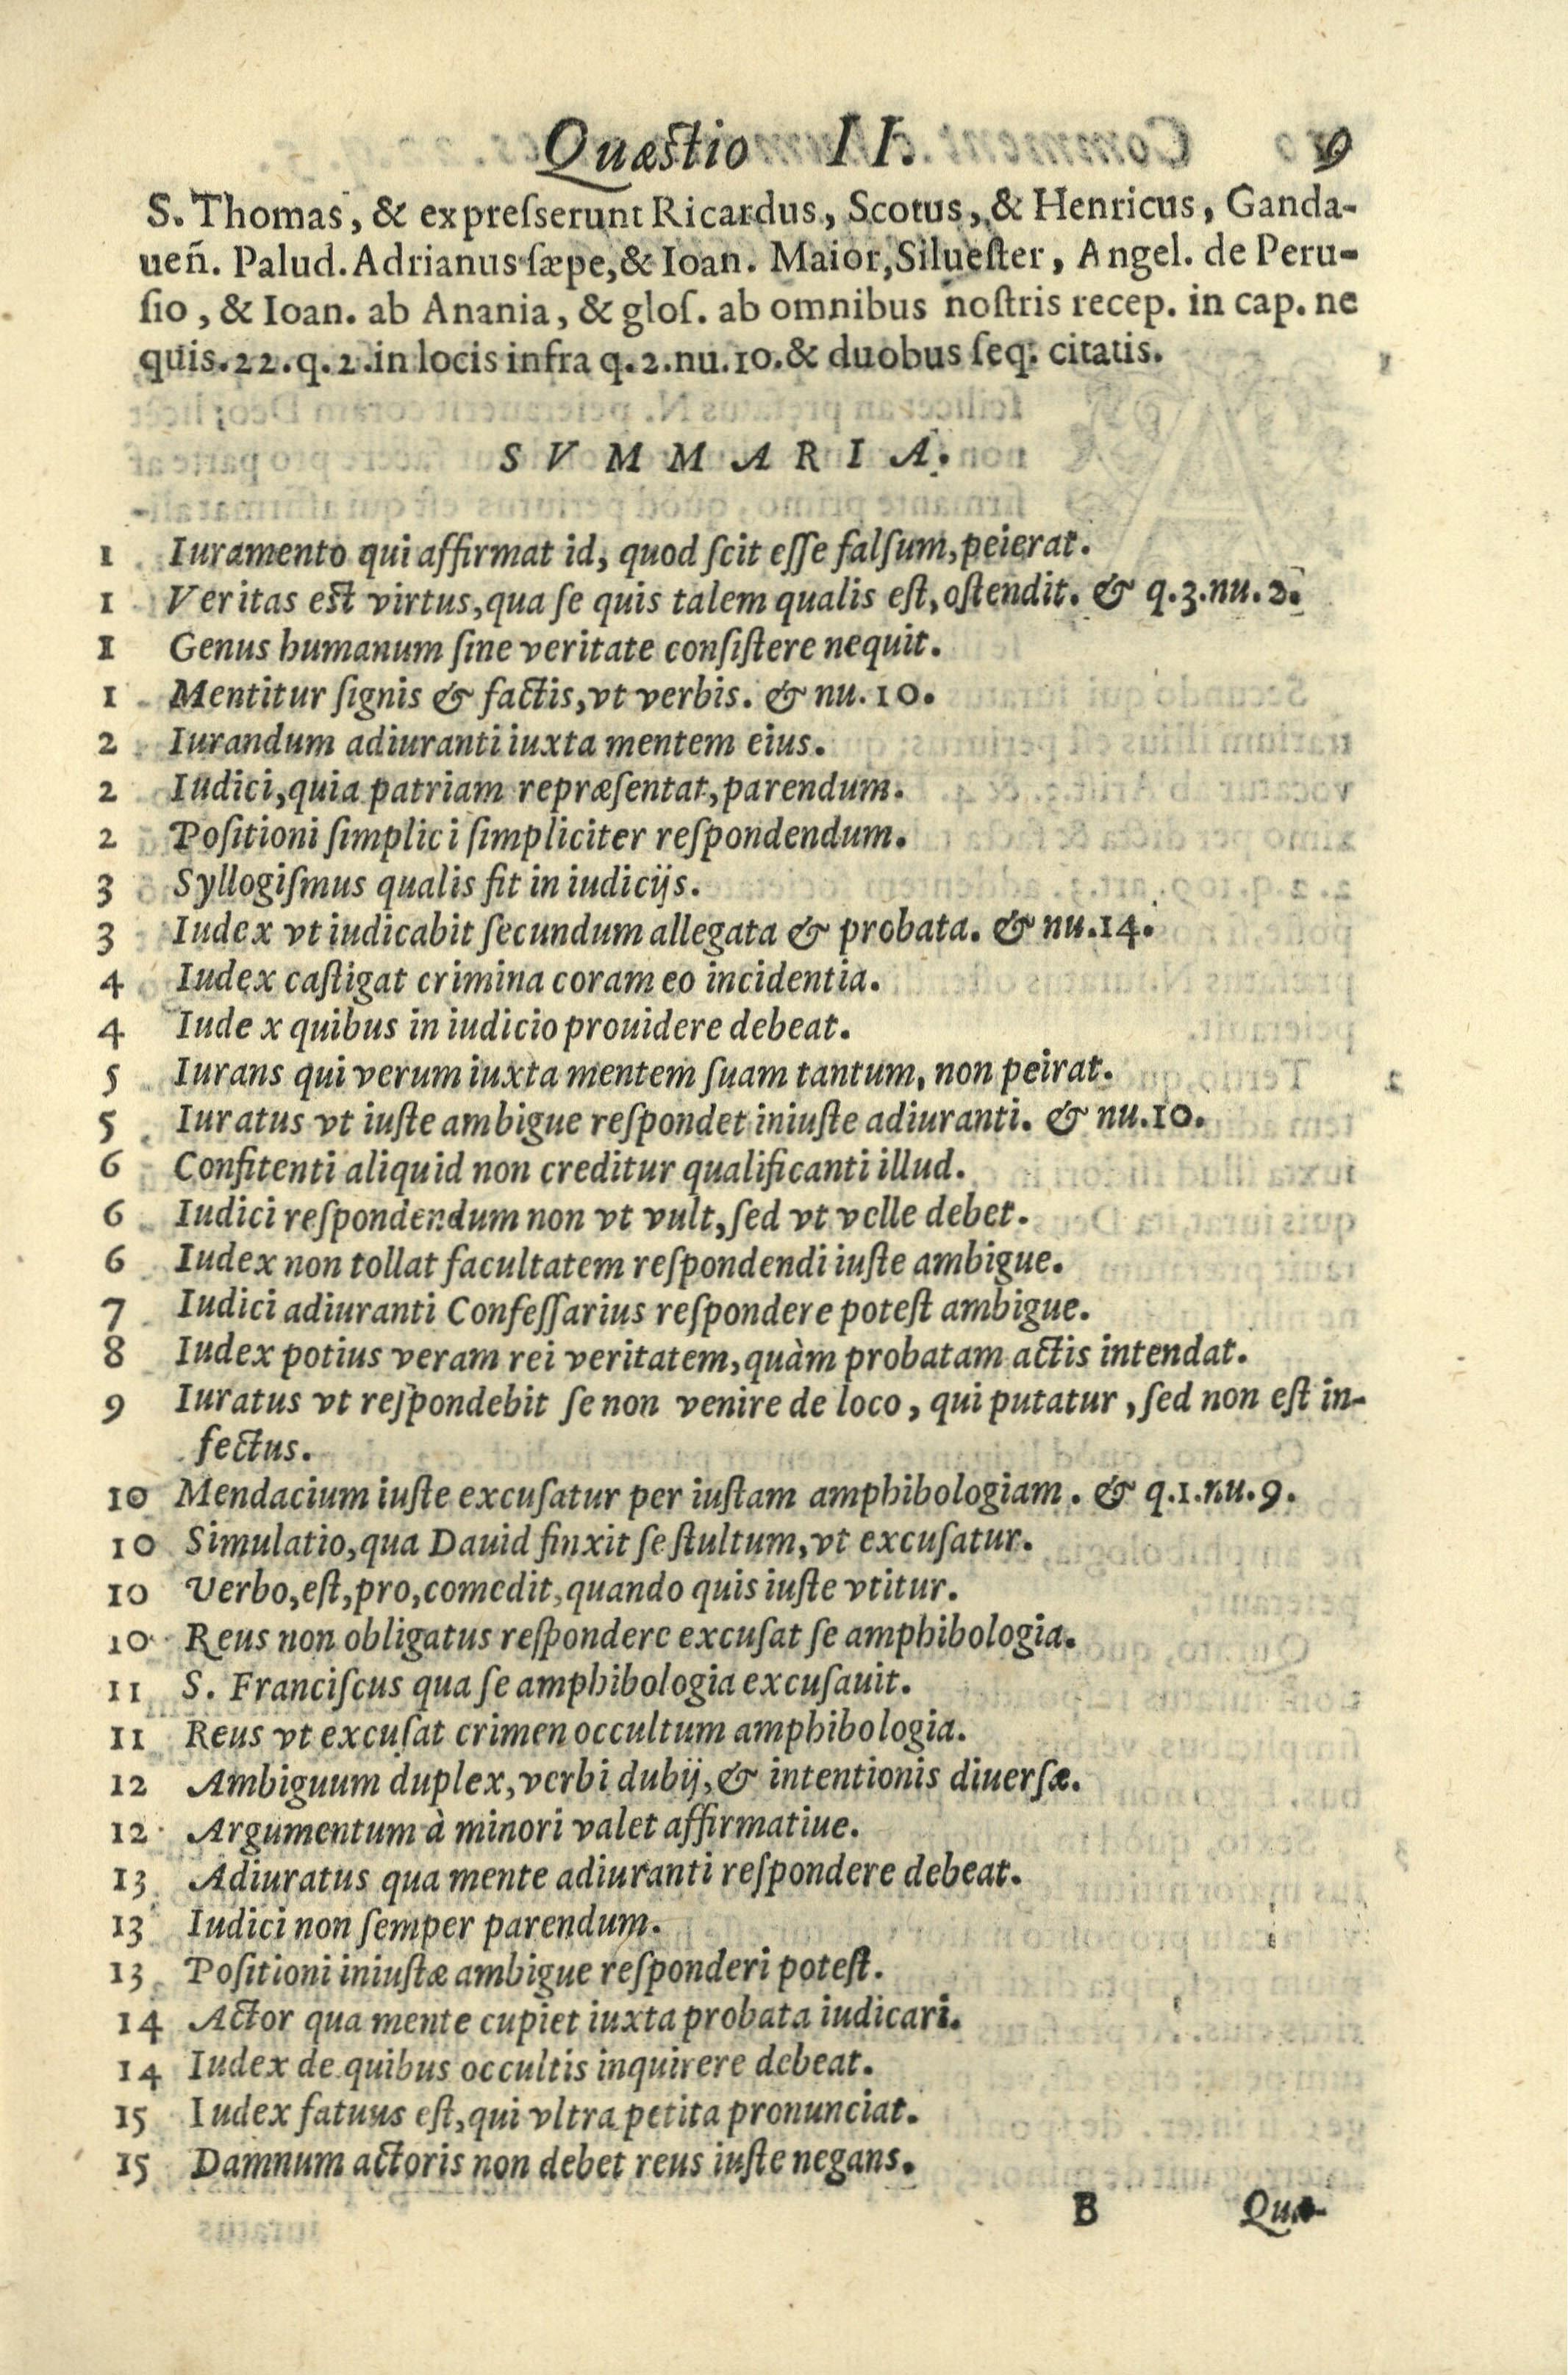 Quæstio II. 9
S. Thomas, & expreſserunt Ricardus, Scotus, & Henricus, Ganda-
ueñ. Palud. Adrianus sæpe, & Ioan. Maior, Silueſter, Angel. de Peru-
ſio, & Ioan. ab Anania, & gloſ. ab omnibus nostris recep. in cap. ne
quis. 22. q. 2. in locis infra q. 2. nu. 10. & duobus ſeq. citatis.
SVMMARIA.
1 Iuramento qui affirmat id, quod ſcit eſſe falſum, peierat.
1 Veritas est virtus, qua ſe quis talem qualis eſt, oſtendit. & q. 3. nu. 2.
1 Genus humanum ſine veritate conſiſtere nequit.
1 Mentitur ſignis & factis, vt verbis. & nu. 10.
2 Iurandum adiuranti iuxta mentem eius.
2 Iudici, quia patriam repræſentat, parendum.
2 Poſitioni ſimplici ſimpliciter reſpondendum.
3 Syllogiſmus qualis fit in iudicijs.
3 Iudex vt iudicabit ſecundum allegata & probata. & nu. 14.
4 Iudex caſtigat crimina coram eo incidentia.
4 Iudex quibus in iudicio prouidere debeat.
5 Iurans qui verum iuxta mentem ſuam tantum, non peirat.
5 Iuratus vt iuſte ambigue reſpondet iniuſte adiuranti. & nu. 10.
6 Confitenti aliquid non creditur qualificanti illud.
6 Iudici reſpondendum non vt vult, ſed vt velle debet.
6 Iudex non tollat facultatem reſpondendi iuſte ambigue.
7 Iudici adiuranti Confeſſarius reſpondere poteſt ambigue.
8 Iudex potius veram rei veritatem, quàm probatam actis intendat.
9 Iuratus vt reſpondebit ſe non venire de loco, qui putatur, ſed non eſt in-
fectus.
10 Mendacium iuſte excuſatur per iuſtam amphibologiam. & q. 1. nu. 9.
10 Simulatio, qua Dauid finxit ſe ſtultum, vt excuſatur.
10 Verbo, eſt, pro, comedit, quando quis iuſte vtitur.
10 Reus non obligatus reſpondere excuſat ſe amphibologia.
11 S. Franciſcus qua ſe amphibologia excuſauit.
11 Reus vt excuſat crimen occultum amphibologia.
12 Ambiguum duplex, verbi dubij, & intentionis diuerſæ.
12 Argumentum à minori valet affirmatiue.
13 Adiuratus qua mente adiuranti reſpondere debeat.
13 Iudici non ſemper parendum.
13 Poſitioni iniuſtæ ambigue reſponderi poteſt.
14 Actor qua mente cupiet iuxta probata iudicari.
14 Iudex de quibus occultis inquirere debeat.
15 Iudex fatuus eſt, qui vltra petita pronunciat.
15 Damnum actoris non debet reus iuſte negans.
B Quæ-